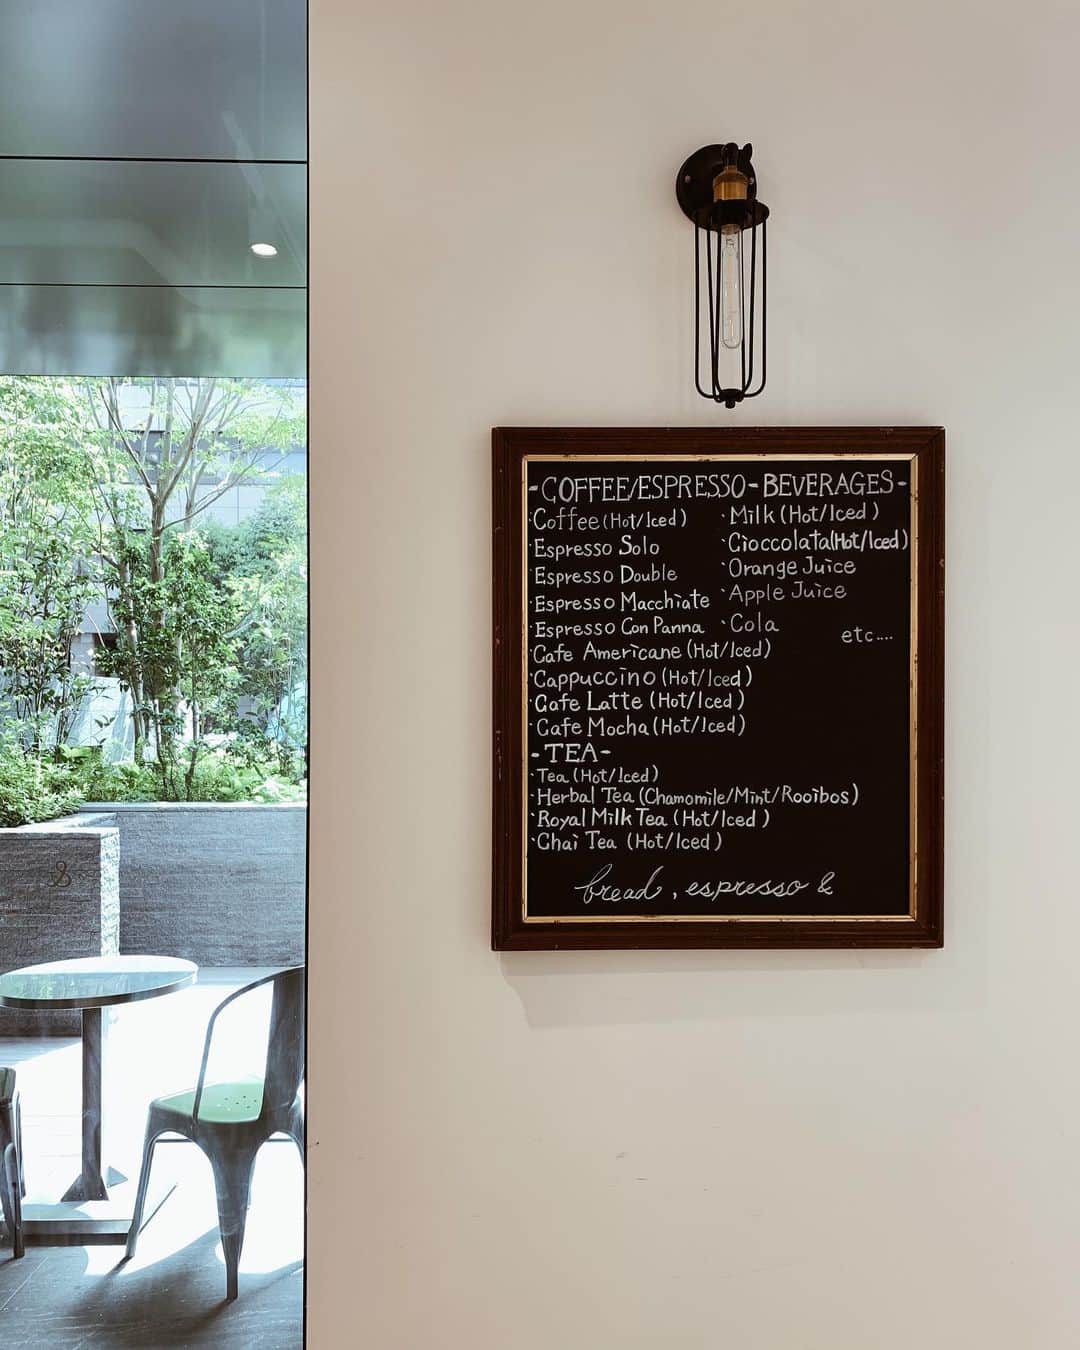 -COFFEE/ESPRESSO-
·Coffee (Hot/Iced)
Espresso Solo
Espresso Double
·Espresso Macchiate
Espresso Con Panna
·Cafe Americane (Hot/Iced)
·Cappuccino (Hot/Iced)
·Cafe Latte (Hot/Iced)
·Cafe Mocha (Hot/Iced)
-TEA-
·Tea (Hot/Iced)
·Herbal Tea (Chamomile/Mint/Rooibos)
·Royal Milk Tea (Hot/Iced)
·Chai Tea (Hot/Iced)
BEVERAGES-
·Milk (Hot/Iced)
·Cioccolata (Hot/Iced)
·Orange Juice
·Apple Juice
·Cola
etc....
bread, espresso &